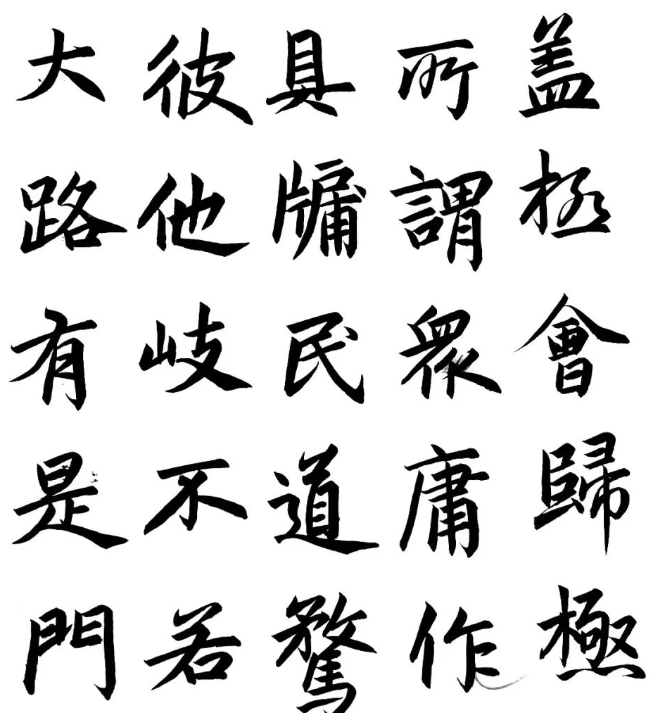 盖於會歸極
所謂衆庸作
具牖民道騖
彼他岐不若
大路有是門